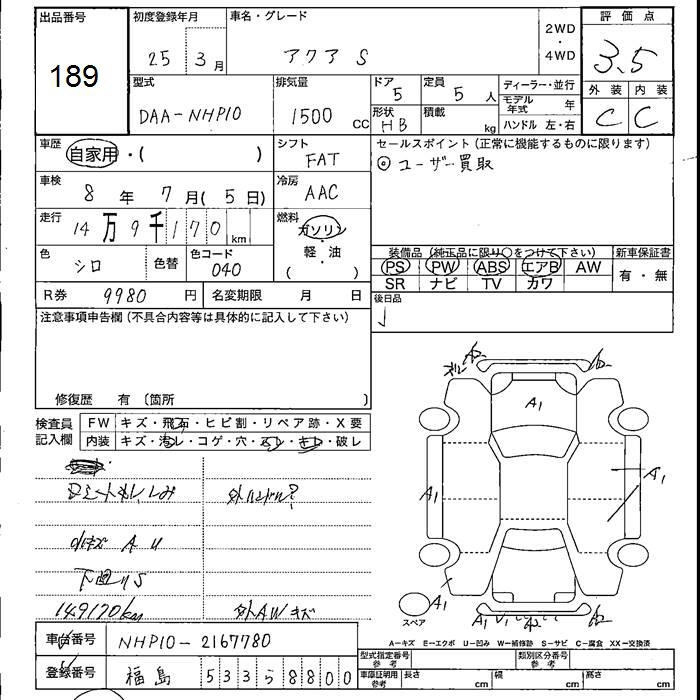 出品番号
189
初度登録年月
25 3月
車名・グレード
アクア S
2WD
・
4WD
評価点
3.5
外装 内装
C C
型式
DAA-NHP10
排気量
1500 cc
ドア
5
形状
HB
定員
5 人
積載
kg
ディーラー・並行
モデル年式 年
ハンドル 左・右
車歴
自家用・( )
シフト
FAT
セールスポイント (正常に機能するものに限ります)
◎ユーザー買取
車検
8年 7月 (5日)
冷房
AAC
走行
14万9千170 km
燃料
ガソリン
・
軽・油
( )
色
シロ
色替
色コード
040
装備品 (純正品に限り○をつけて下さい)
新車保証書
PS PW ABS エアB AW
SR ナビ TV カワ
有・無
R券 9980 円
名変期限 月 日
後日品
注意事項申告欄 (不具合内容等は具体的に記入して下さい)
修復歴 有 〔箇所 〕
検査員
記入欄
FW キズ・飛石・ヒビ割・リペア跡・X要
内装 キズ・汚レ・コゲ・穴・スレ・キレ・破レ
小キズ A U
下回りS
149170km
外AWキズ
A1
A1
A1
A1
A2
A2
A1
A2
A2
スペア
A-キズ E-エクボ U-凹み W-補修跡 S-サビ C-腐食 XX-交換済
車台番号 NHP10-2167780
登録番号 福島 533 58800
型式指定番号
参考
類別区分番号
参考
車庫証明用
参考
長さ cm
幅 cm
高さ cm